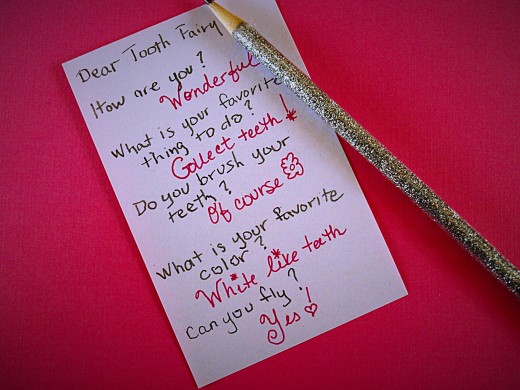 Dear Tooth Fairy
How are you?
Wonderful
What is your favorite
thing to do?
Collect teeth!
Do you brush your
teeth?
Of course
What is your favorite
color?
White like teeth
Can you fly?
Yes!